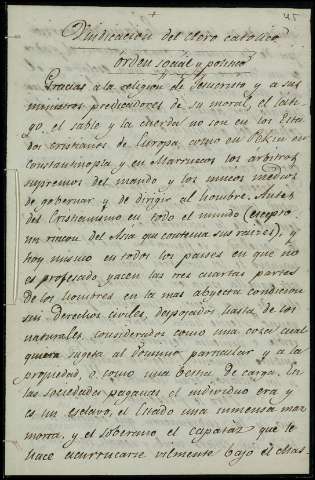 45
Vindicacion del clero catolico
orden social y politico
Gracias a la religion de Jesucristo y a sus
ministros predicadores de su moral, el lati-
go, el sable y la cuerda no son en los Esta
dos cristianos de Europa, como en Pekin en
Constantinopla y en Marruecos los arbitros
supremos del mando y los unicos medios
de gobernar y de dirigir al hombre. Antes
del Cristianismo en todo el mundo (excepto
un rincon del Asia que contenia sus raices), y
hoy mismo en todos los paises en que no
es profesado, yacen las tres cuartas partes
de los hombres en la mas abyecta condicion
sin derechos civiles, despojados hasta de los
naturales, considerados como una cosa cual
quiera sugeta al dominio particular y a la
propiedad, o como una bestia de carga. En
las sociedades paganas el individuo era y
es un esclavo, el Estado una inmensa maz
morra, y el soberano el capataz que le
hace acurrucarse vilmente bajo el chas-